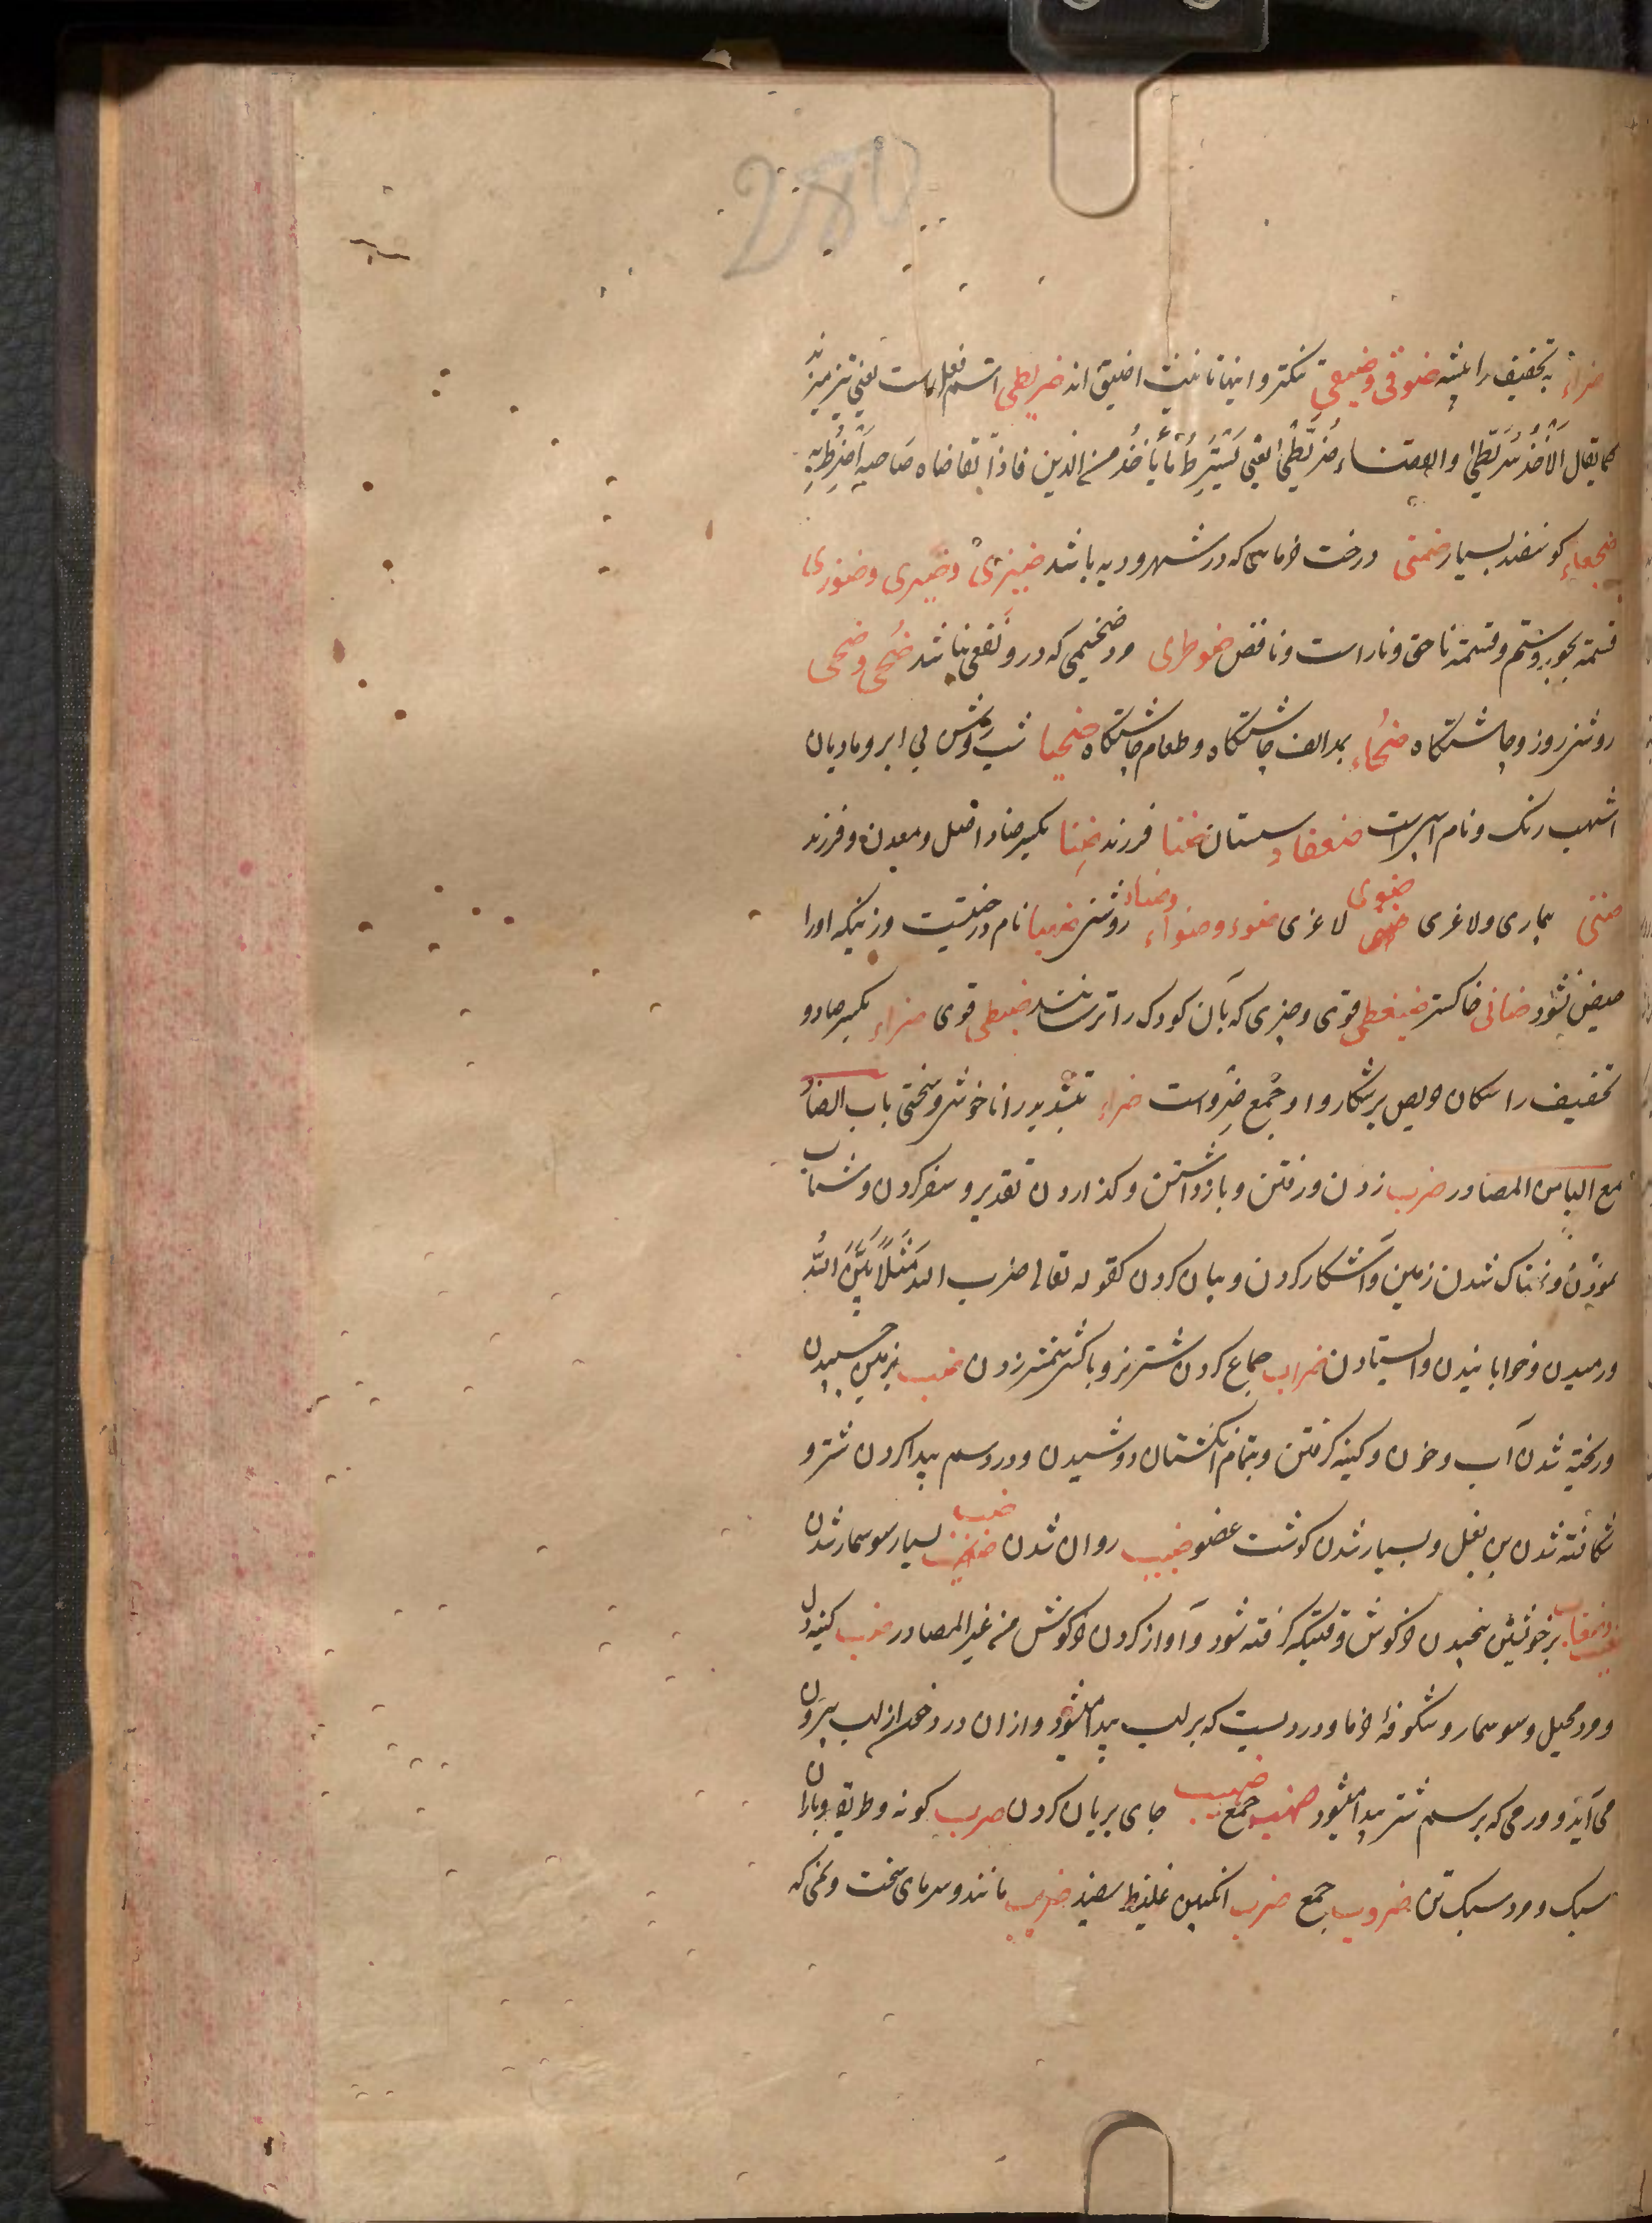 280
ضراء به تخفیف را بیشه ضوقی و ضیقی تنکتر و اینها تانیث اضیق اند ضریطی اسم فعل است یعنی تیز میزند
کما یقال الاخذ سریطی والقضاء ضریطی یعنی یسترط ما یاخذ من الدین فاذا تقاضاه صاحبه اضرط به
ضجعاء کوسفند بسیار ضمنی درخت خرمایی که در شهر و دیه باشد ضیزی و ضیری و ضوزی
قسمة بجور و ستم و قسمة ناحق و ناراست و ناقص ضوطری مرد ضخیمی که در و نفعی نباشد ضحی و ضحی
روشنی روز و چاشتکاه ضحاء بمد الف چاشتکاه و طعام چاشتکاه ضحیا شب روشن بی ابر و مادیان
اشهب رنک و نام اسپ است ضعفاء سستان ضنا فرزند ضنا بکسر ضاد اصل و معدن و فرزند
ضنی بیماری و لاغری ضوی لاغری ضوء و ضواء و ضیاء روشنی ضهیا نام درختیت و زنیکه او را
حیض نشود ضانی خاکستر ضبغطی قوی و چیزی که بآن کودک را ترسانند ضبطی قوی ضراء بکسر ضاد و
تخفیف را سکان حریص بر شکار و او جمع ضرو است ضراء بتشدید را ناخوشی و سختی باب الضاد
مع الباء من المصادر ضرب زدن و رفتن و بازداشتن و کذاردن تقدیر و سفر کردن و شتاب
نمودن و نمناک شدن زمین و آشکار کردن و بیان کردن کقوله تعالی ضرب الله مثلا بین الله
و رمیدن و خوابانیدن و ایستادن ضراب جماع کردن شتر نر و با کسی شمشیر زدن ضب بر زمین چسپیدن
و ریخته شدن آب و خون و کینه کرفتن و بتمام انکشتان دوشیدن و درد سم پیدا کردن شتر و
شکافته شدن بن بغل و بسیار شدن کوشت عضو ضبیب روان شدن ضبب بسیار سوسمار شدن
ضغیب و ضغاب بر خویشتن پیچیدن خرکوش وقتیکه کرفته شود و آواز کردن خرکوش من غیر المصادر ضب کینه دل
و مرد محیل و سوسمار و شکوفه خرما و دردیست که بر لب پیدا میشود و از ان درد خون از لب بیرون
می آید و ورمی که بر سم شتر پیدا میشود ضهیب جای بریان کردن ضرب کونه و طریق و باران
سبک و مرد سبک تن ضروب جمع ضرب انکبین غلیظ سفید ضریب مانند و سرمای سخت و